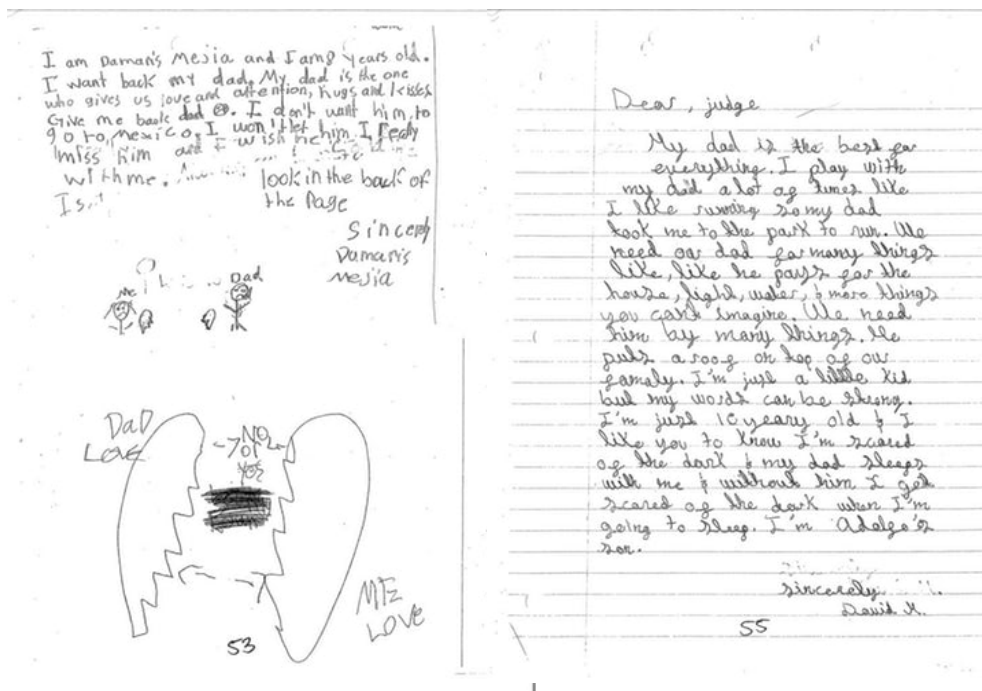 I am Damaris Mejia and I am 8 years old.
I want back my dad. My dad is the one
who gives us love and attention, hugs and kisses
Give me back dad. I don't want him to
go to Mexico. I won't let him. I really
miss him and I wish he
with me.
look in the back of
the Page
Sincerly
Damaris
Mejia
Me
Dad
DaD
LOVE
NO
or
Yes
ME
LOVE
53
Dear, judge
My dad is the best for
everything. I play with
my dad a lot of times like
I like running so my dad
took me to the park to run. We
need our dad for many things
like, like he pays for the
house, light, water, & more things
you can't imagine. We need
him by many things. He
puts a roof on top of our
famaly. I'm just a little kid
but my words can be strong.
I'm just 10 years old & I
like you to know I'm scared
of the dark & my dad sleeps
with me & without him I get
scared of the dark when I'm
going to sleep. I'm Adolfo's
son.
sincerely
David M.
55